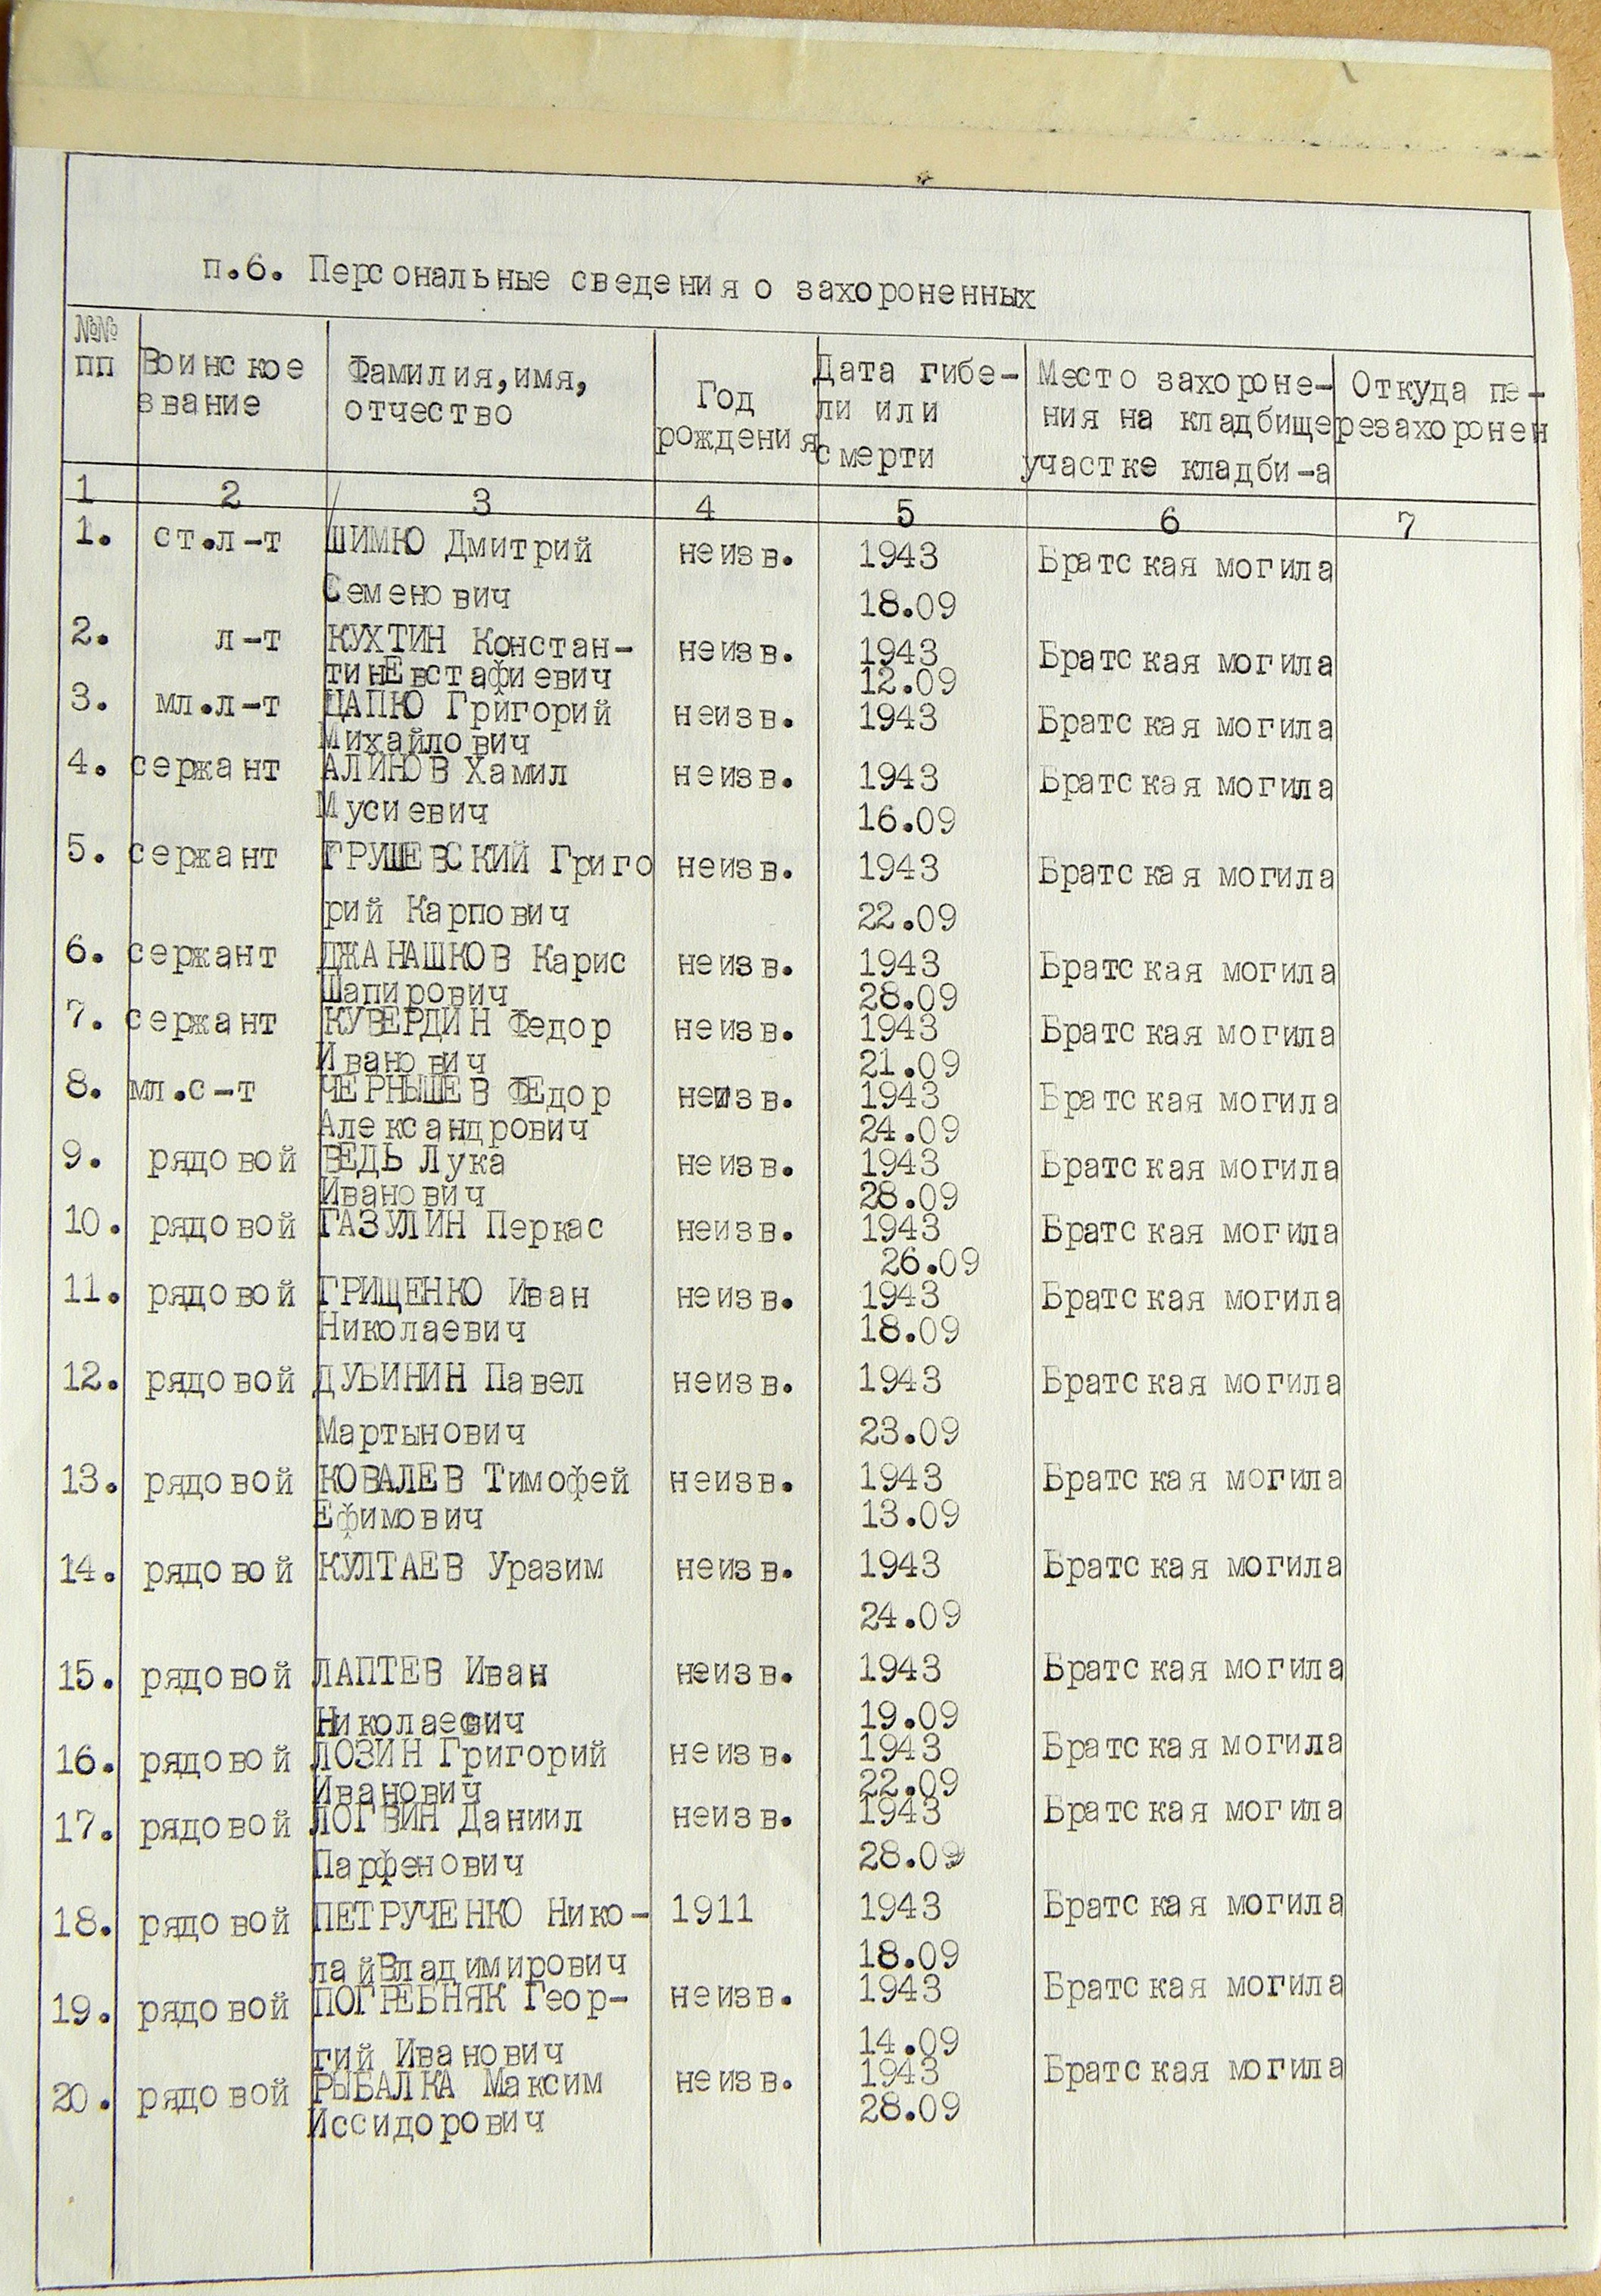 п.6. Персональные сведения о захороненных
№№ пп Воинское звание Фамилия, имя, отчество Год рождения Дата гибе-ли или смерти Место захороне-ния на кладбище участке кладби-а Откуда пе-резахоронен
1 2 3 4 5 6 7
1. ст.л-т ШИМКО Дмитрий неизв. 1943 Братская могила
Семенович 18.09
2. л-т КУХТИН Констан- неизв. 1943 Братская могила
тинЕвстафиевич 12.09
3. мл.л-т ЦАПКО Григорий неизв. 1943 Братская могила
Михайлович
4. сержант АЛИКОВ Хамил неизв. 1943 Братская могила
Мусиевич 16.09
5. сержант ГРУШЕВСКИЙ Григо неизв. 1943 Братская могила
рий Карпович 22.09
6. сержант ДЖАНАШКОВ Карис неизв. 1943 Братская могила
Шапирович 28.09
7. сержант КУВЕРДИН Федор неизв. 1943 Братская могила
Иванович 21.09
8. мл.с-т ЧЕРНЫШЕВ ФЕдор неизв. 1943 Братская могила
Александрович 24.09
9. рядовой ВЕДЬ Лука неизв. 1943 Братская могила
Иванович 28.09
10. рядовой ГАЗУЛИН Перкас неизв. 1943 Братская могила
26.09
11. рядовой ГРИЩЕНКО Иван неизв. 1943 Братская могила
Николаевич 18.09
12. рядовой ДУБИНИН Павел неизв. 1943 Братская могила
Мартынович 23.09
13. рядовой КОВАЛЕВ Тимофей неизв. 1943 Братская могила
Ефимович 13.09
14. рядовой КУЛТАЕВ Уразим неизв. 1943 Братская могила
24.09
15. рядовой ЛАПТЕВ Иван неизв. 1943 Братская могила
Николаевич 19.09
16. рядовой ЛОЗИН Григорий неизв. 1943 Братская могила
Иванович 22.09
17. рядовой ЛОГВИН Даниил неизв. 1943 Братская могила
Парфенович 28.09
18. рядовой ПЕТРУЧЕНКО Нико- 1911 1943 Братская могила
лайВладимирович 18.09
19. рядовой ПОГРЕБНЯК Геор- неизв. 1943 Братская могила
гий Иванович 14.09
20. рядовой РЫБАЛКА Максим неизв. 1943 Братская могила
Иссидорович 28.09